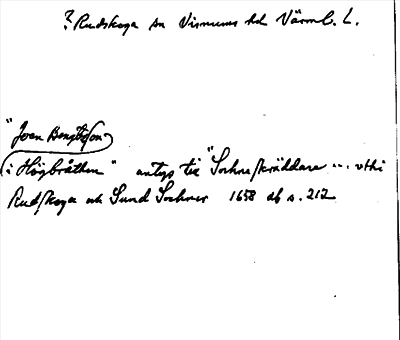 ? Rudskoga sn Visnums hd Värml. L.
"Joen Bengtsson
i Högbråthen" antogs til "Sockneskräddare ... uthi
Rudskoga och Sund Sockner 1658 db s. 212